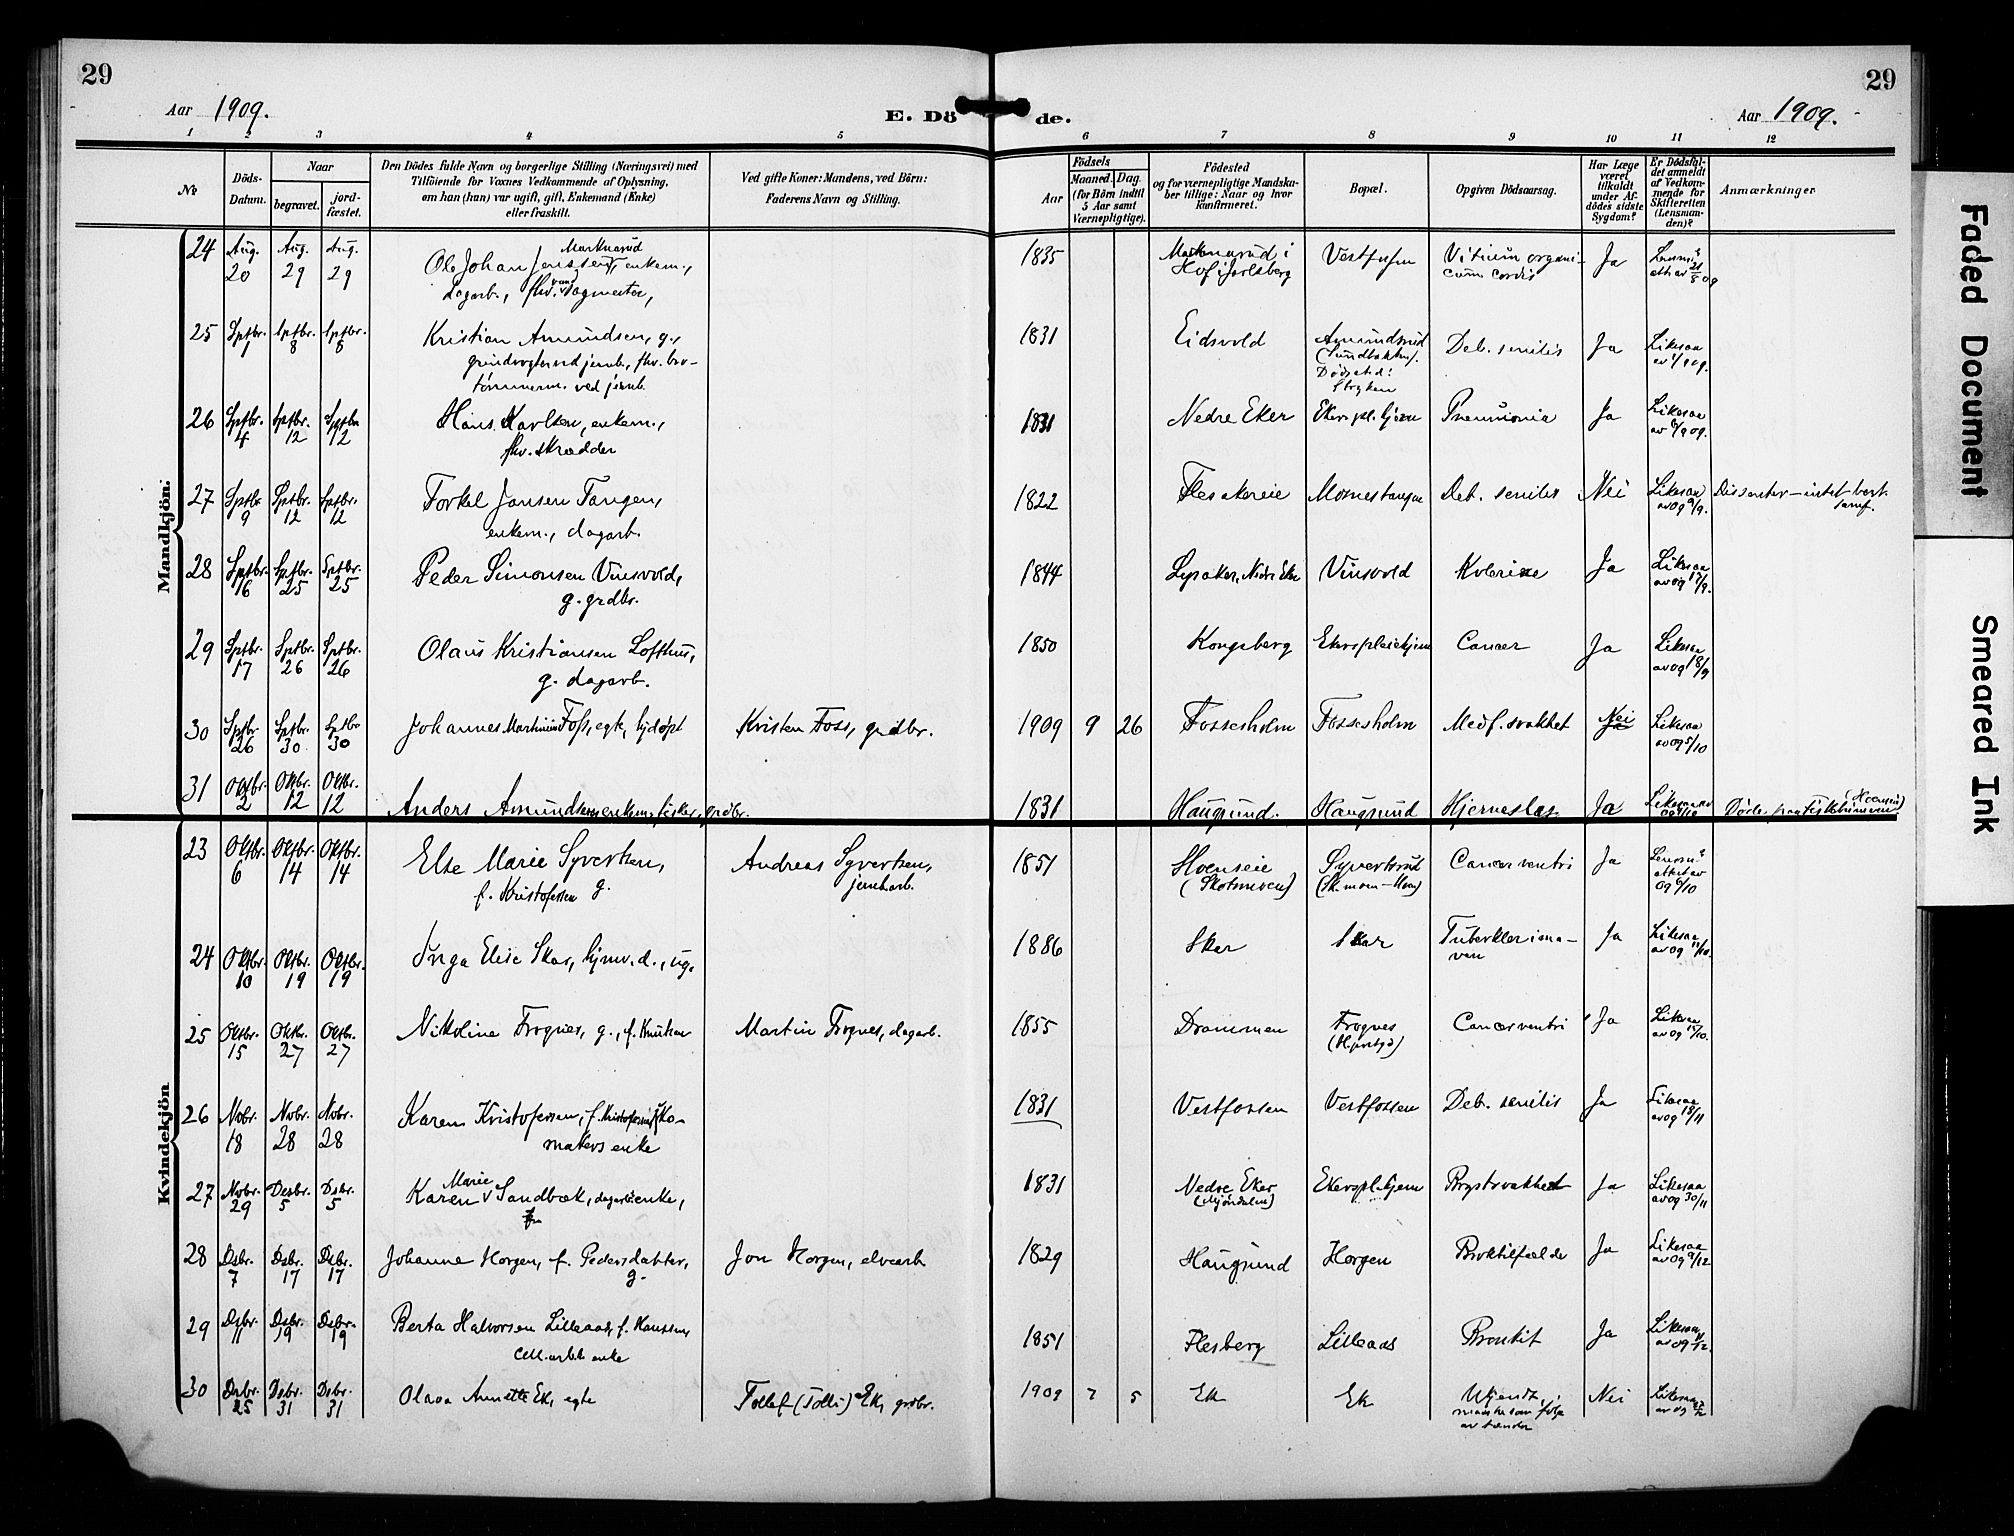 29
29
Aar 1909.
E. Dö de.
Aar 1909.
1 2 3 4 5 6 7 8 9 10 11 12
№
Döds-Datum.
Naar
begravet.
jord-fæstet.
Den Dödes fulde Navn og borgerlige Stilling (Næringsvei) med
Tilföiende for Voxnes Vedkommende af Oplysning,
om han (hun) var ugift, gift, Enkemand (Enke)
eller fraskilt.
Ved gifte Koner: Mandens, ved Börn:
Faderens Navn og Stilling.
Födsels
Aar
Maaned. Dag.
(for Börn indtil
5 Aar samt
Værnepligtige).
Födested
og for værnepligtige Mandska-
ber tillige: Naar og hvor
konfirmeret.
Bopæl.
Opgiven Dödsaarsag.
Har Læge
været
tilkaldt
under Af-
dödes sidste
Sygdom?
Er Dödsfal-
det anmeldt
af Vedkom-
mende for
Skifteretten
(Lensman-
den)?
Anmærkninger
Mandkjön:
24 Aug. 20 Aug. 29 Aug. 29 Ole Johan Jenssen Marknarud, enkem., dagarb., fhv. vognmester, 1835 Marknarud i Hof i Jarlsberg Vestfossen Vitium organicum cordis Ja
25 Sptbr. 1 Sptbr. 8 Sptbr. 8 Kristian Amundsen, g., grindvogter ved jernb., fhv. bro-
tømmerm. ved jernb. 1831 Eidsvold Amundsrud Dødssted: Stryken Deb. senilis Ja Likesaa
26 Sptbr. 4 Sptbr. 12 Sptbr. 12 Hans Karlsen, enkem., fhv. skrædder 1831 Nedre Eker Ekers pl. hjem Pneumonia Ja Likesaa
27 Sptbr. 9 Sptbr. 12 Sptbr. 12 Torkel Jansen Tangen, enkem., dagarb. 1822 Flesakereie Moenestangen Deb. senilis Nei Likesaa av 09 9/9. Dissenter – intet
28 Sptbr. 16 Sptbr. 25 Sptbr. 25 Peder Simonsen Vinsvold, g. grdbr. 1844 Lysaker, Nedre Eker Vinsvold Kolerine Ja Likesaa av 09 17/9.
29 Sptbr. 17 Sptbr. 26 Sptbr. 26 Olaus Kristiansen Lofthus, g. dagarb. 1850 Kongsberg Ekers pleiehjem Cancer Ja Likesaa av 09 18/9
30 Sptbr. 26 Sptbr. 30 Sptbr. 30 Johannes Martinius Foss, egte, hjdøpt Kristen Foss, grdbr. 1909 9 26 Fossesholm Fossesholm Medf. svakhet Nei Likesaa av 09 5/10
31 Oktbr. 2 Oktbr. 12 Oktbr. 12 Anders Amundsen enkem., fisker, grdbr. 1831 Haugsund. Haugsund Hjerneslag Ja Likesaa
Kvindekjön
23 Oktbr. 6 Oktbr. 14 Oktbr. 14 Else Marie Syvertsen, f. Kristofersen g. Andreas Syvertsen, jernbarb. 1851 Hoenseie (Skotsmoen) Syvertsrud Cancer ventri Ja
24 Oktbr. 10 Oktbr. 19 Oktbr. 19 Inga Elise Skar, hjmv. d., ug. 1886 Skar Skar Tuberkler i ma-
ven Ja Likesaa av 09
25 Oktbr. 15 Oktbr. 27 Oktbr. 27 Nikoline Frognes, g., f. Knutsen Martin Frognes, dagarb. 1855 Drammen Frognes Cancer ventri Ja Likesaa av 09
26 Nvbr. 18 Nvbr. 28 Nvbr. 28 Karen Kristofersen, f. Kristofersen, sko-
makers enke 1831 Vestfossen Vestfossen Deb. senilis Ja Likesaa av 09 18/11
27 Nvbr. 29 Desbr. 5 Dsbr. 5 Karen Marie Sandbæk, dagarb.s enke, 1831 Nedre Eker (Mjøndalen) Ekers pl. hjem Brystsvakhet Ja Likesaa av 09 30/11
28 Dsbr. 7 Dsbr. 17 Dsbr. 17 Johanne Horgen, f. Pedersdatter, g. Jon Horgen, elvearb. 1829 Haugsund Horgen Broktilfælde Ja Likesaa av 09 9/12
29 Dsbr. 11 Dsbr. 19 Dsbr. 19 Berta Halvorsen Lilleaas, f. Hanssen, cell.arbeid. enke 1851 Flesberg Lilleaas Bronkit Ja Likesaa
30 Dsbr. 25 Dsbr. 31 Dsbr. 31 Olava Annette Ek, egte Tollef (Tolli) Ek, grdbr. 1909 7 5 Ek Ek Ukjendt, maaske som følge av tænder Nei Likesaa
Faded Document
Smeared Ink